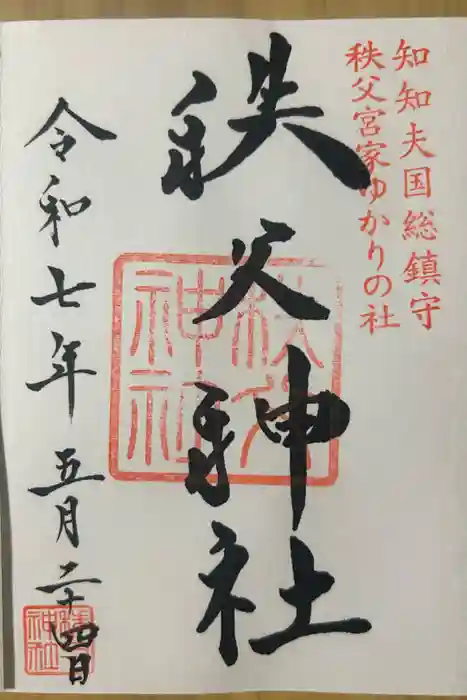 知知夫国総鎮守
秩父宮家ゆかりの社
秩父神社
秩父
神社
令和七年五月二十四日
神社